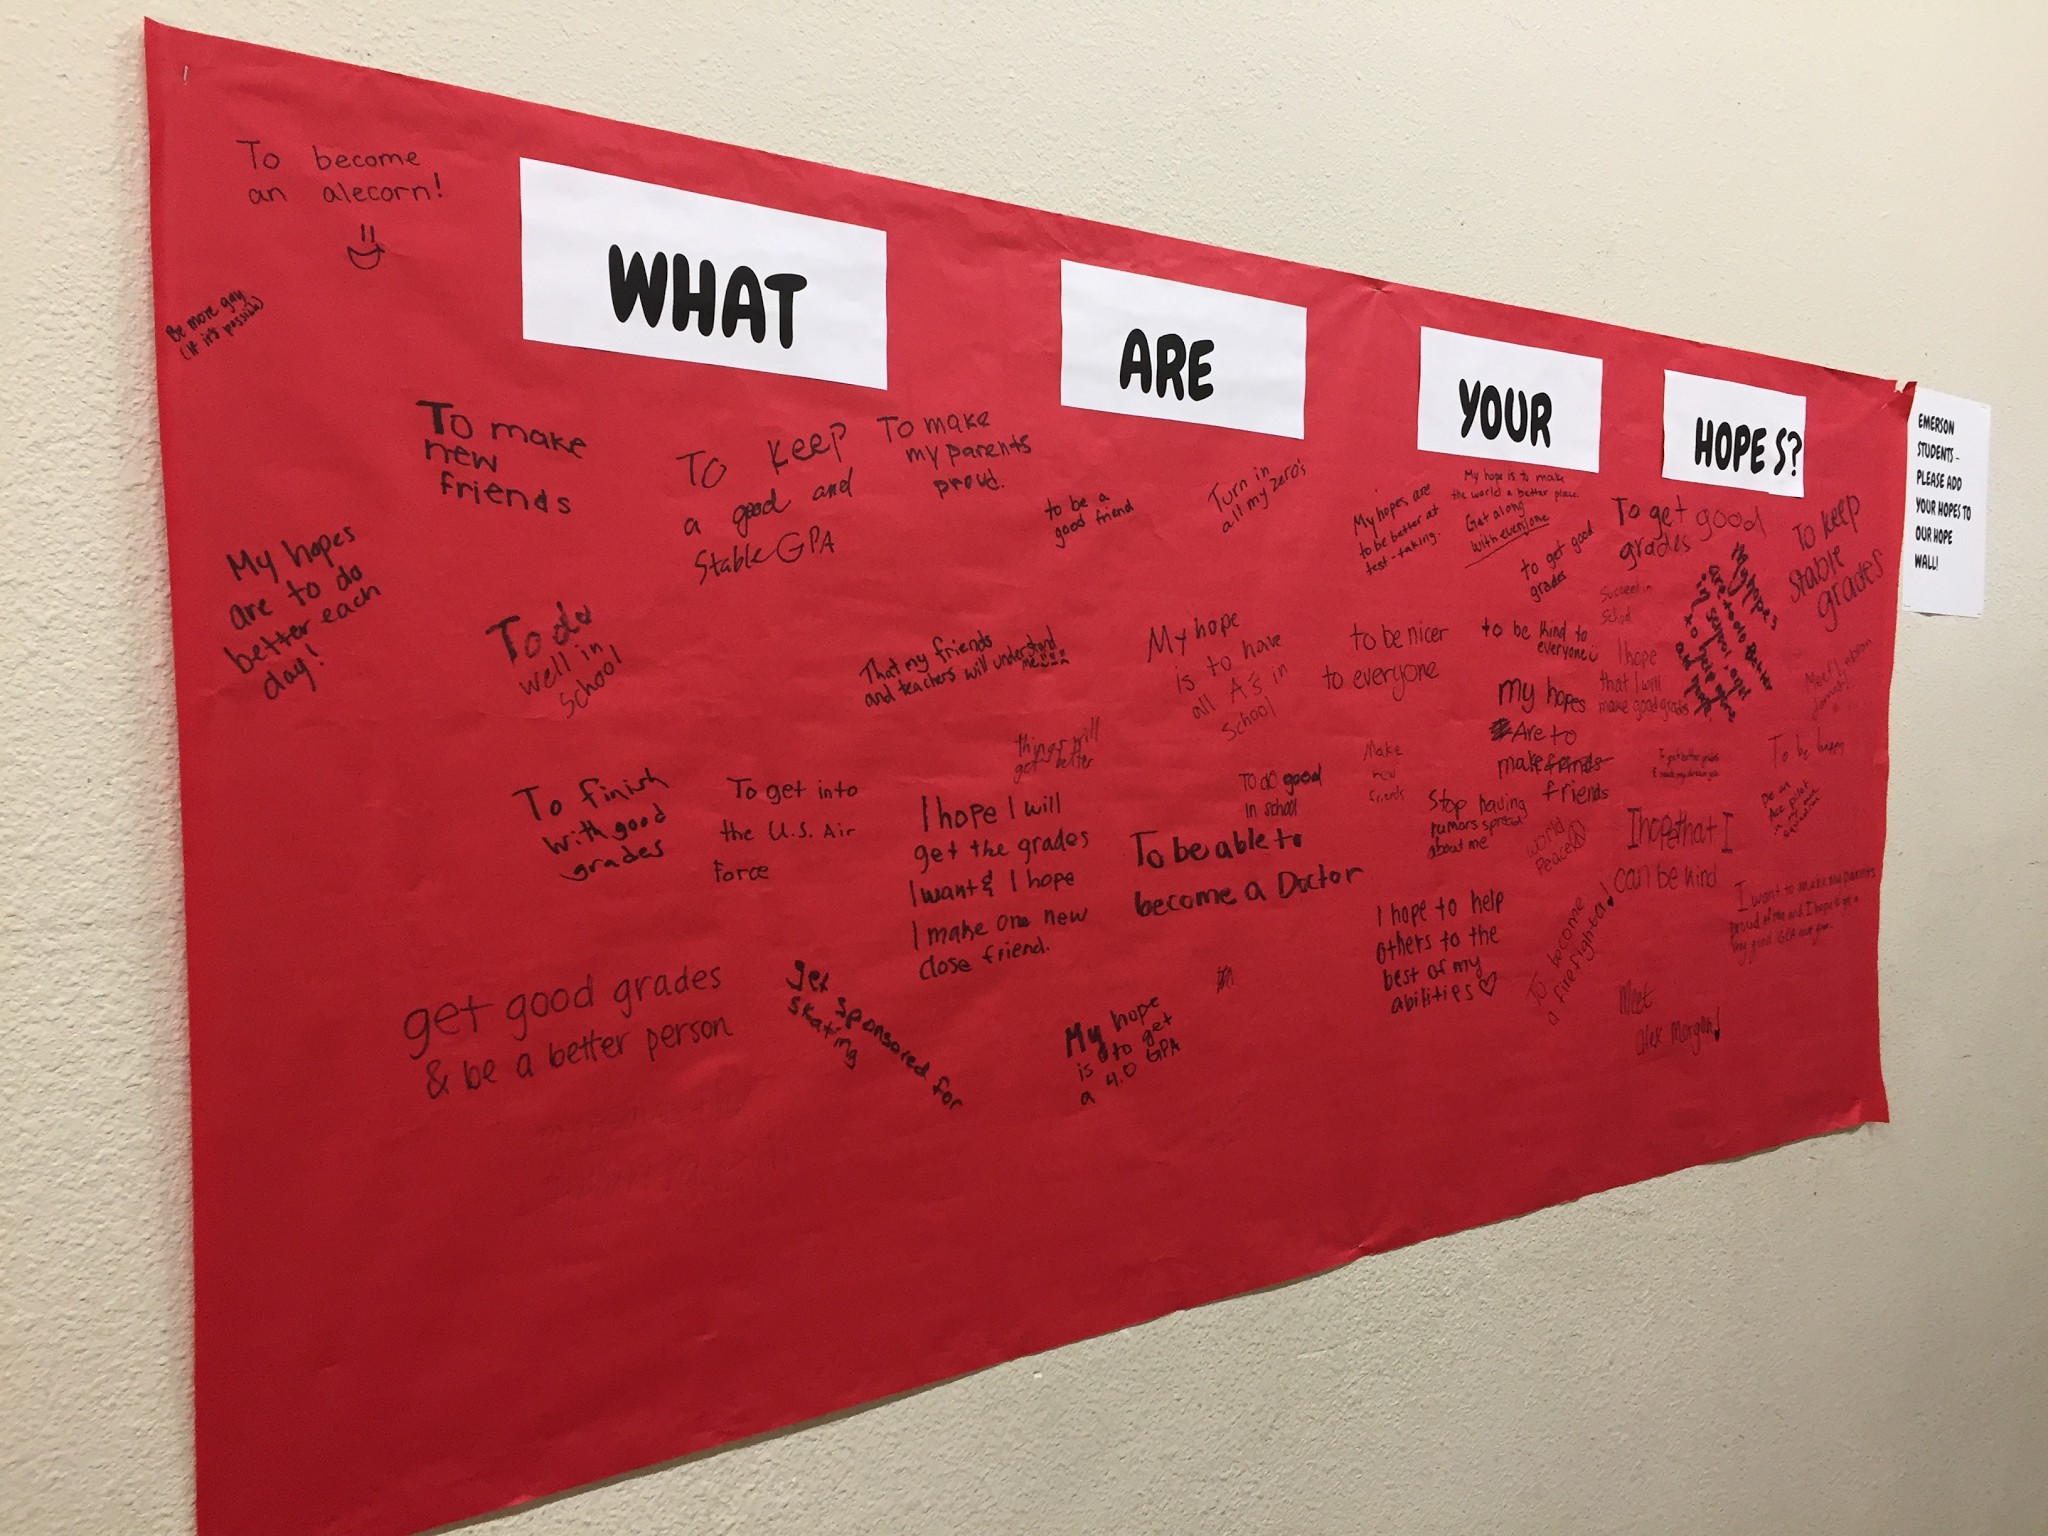 WHAT
ARE
YOUR
HOPES?
EMERSON
STUDENTS -
PLEASE ADD
YOUR HOPES TO
OUR HOPE
WALL!
To become
an alecorn!
Be more gay
(if it's possible)
To make
new
friends
To keep
a good and
stable GPA
To make
my parents
proud.
to be a
good friend
Turn in
all my zero's
My hopes are
to be better at
test-taking.
My hope is to make
the world a better place.
Get along
with everyone
to get good
grades
To get good
grades
To keep
stable
grades
My hopes
are to do
better each
day!
To do
well in
school
That my friends
and teachers will understand
me
My hope
is to have
all A's in
school
to be nicer
to everyone
to be kind to
everyone
Succeed in
School
I hope
that I will
make good grades
My hopes
are to do better
in school, and
to
my hopes
Are to
make friends
friends
things will
get better
Make
new
friends
To be happy
To finish
with good
grades
To get into
the U.S. Air
Force
I hope I will
get the grades
I want & I hope
I make one new
close friend.
To do good
in school
To be able to
become a Doctor
Stop having
rumors spread
about me
World
Peace
I hope that I
can be kind
Be an
pilot
in
I want to make my parents
proud of me and I hope to get a
good GPA
I hope to help
others to the
best of my
abilities
To become
a firefighta!
Meet
alex morgan!
get good grades
& be a better person
get sponsored for
skating
My hope
is to get
a 4.0 GPA